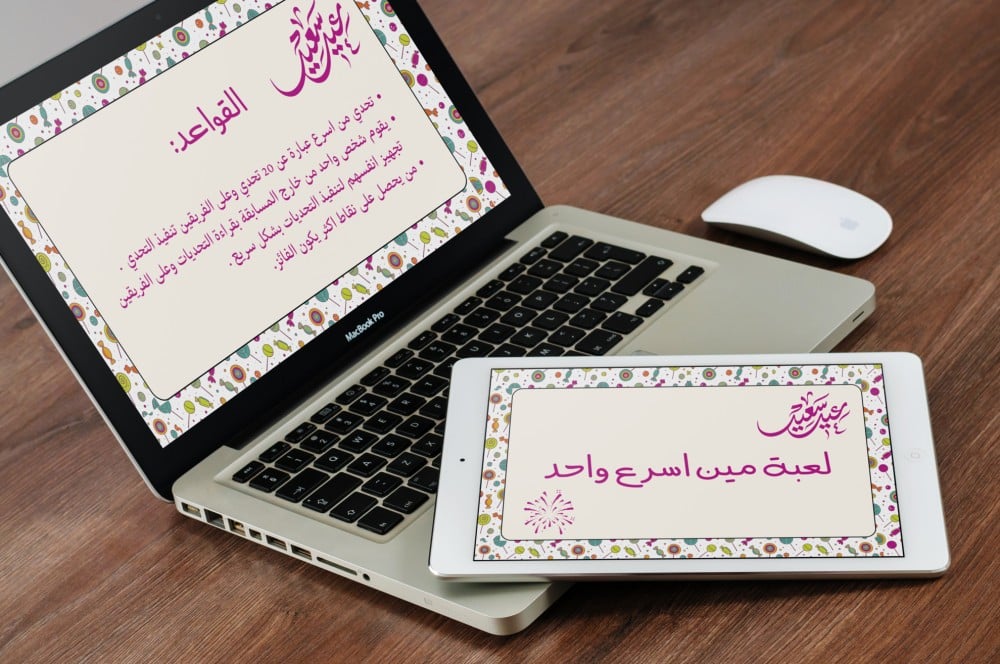 عيد سعيد
القواعد:
• تحدي من اسرع عبارة عن 20 تحدي وعلى الفريقين تنفيذ التحدي .
• يقوم شخص واحد من خارج المسابقة بقراءة التحديات وعلى الفريقين
تجهيز انفسهم لتنفيذ التحديات بشكل سريع .
• من يحصل على نقاط اكثر يكون الفائز.
MacBook Pro
عيد سعيد
لعبة مين اسرع واحد